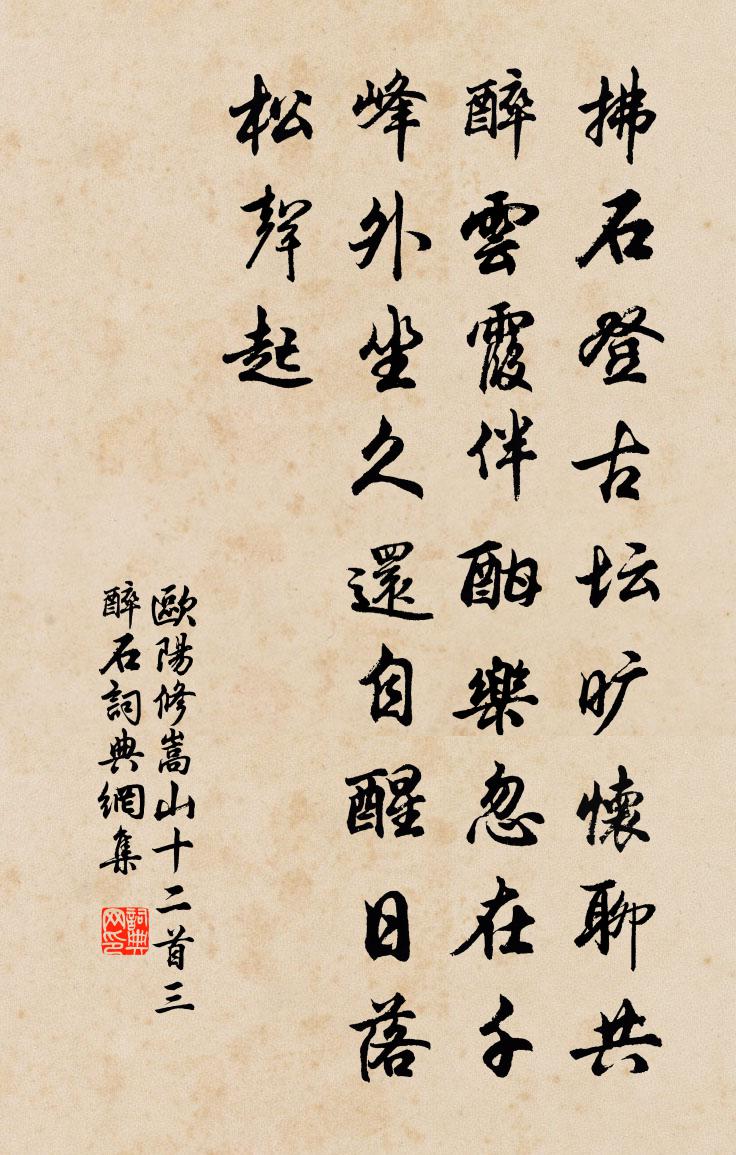 拂石登古坛旷懷聊共
醉雲霞伴酣樂忽在千
峰外坐久還自醒日落
松聲起
歐陽修嵩山十二首三
醉石詞典網集
詞典
网印